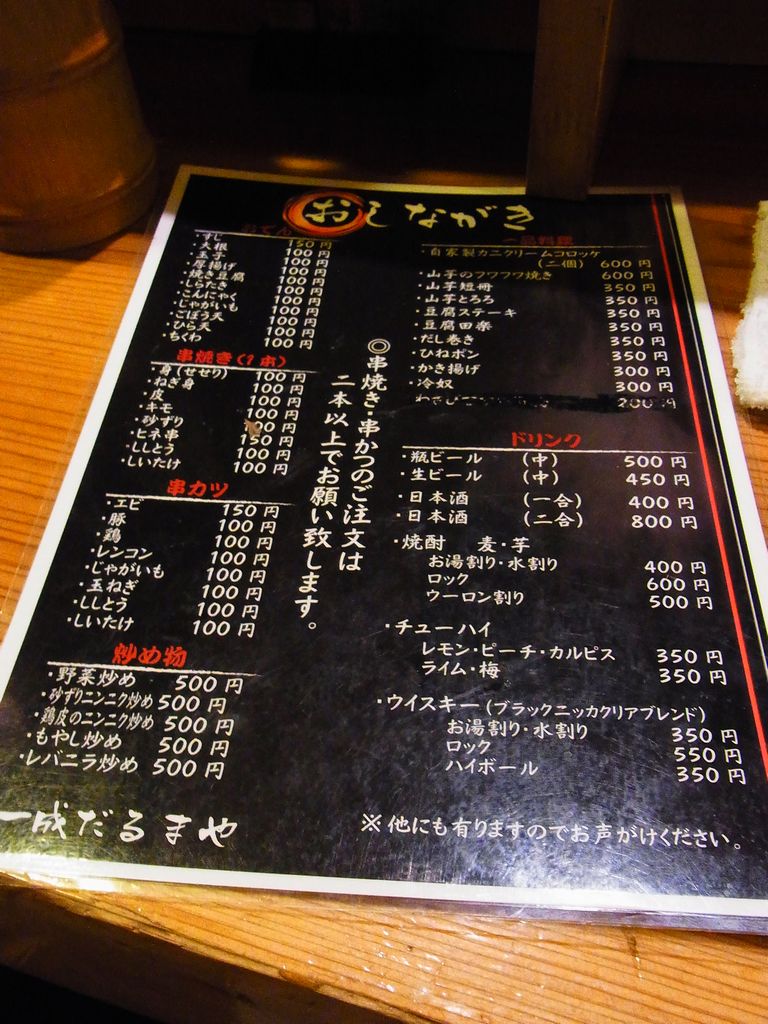 おしながき
おでん
すじ 150円
・大根 100円
・玉子 100円
・厚揚げ 100円
・焼き豆腐 100円
・しらたき 100円
・こんにゃく 100円
・じゃがいも 100円
・ごぼう天 100円
・ひら天 100円
・ちくわ 100円
串焼き(1本)
・身(せせり) 100円
・ねぎ身 100円
・皮 100円
・キモ 100円
・砂ずり 円
・ヒネ串 150円
・ししとう 100円
・しいたけ 100円
串カツ
・エビ 150円
・豚 100円
・鶏 100円
・レンコン 100円
・じゃがいも 100円
・玉ねぎ 100円
・ししとう 100円
・しいたけ 100円
炒め物
・野菜炒め 500円
・砂ずりニンニク炒め 500円
・鶏皮のニンニク炒め 500円
・もやし炒め 500円
・レバニラ炒め 500円
一成だるまや
◎串焼き・串かつのご注文は
二本以上でお願い致します。
一品料理
・自家製カニクリームコロッケ
(二個) 600円
・山芋のフワフワ焼き 600円
・山芋短冊 350円
・山芋とろろ 350円
・豆腐ステーキ 350円
・豆腐田楽 350円
・だし巻き 350円
・ひねポン 350円
・かき揚げ 300円
・冷奴 300円
200円
ドリンク
・瓶ビール (中) 500円
・生ビール (中) 450円
・日本酒 (一合) 400円
・日本酒 (二合) 800円
・焼酎 麦・芋
お湯割り・水割り 400円
ロック 600円
ウーロン割り 500円
・チューハイ
レモン・ピーチ・カルピス 350円
ライム・梅 350円
・ウイスキー(ブラックニッカクリアブレンド)
お湯割り・水割り 350円
ロック 550円
ハイボール 350円
※他にも有りますのでお声がけください。